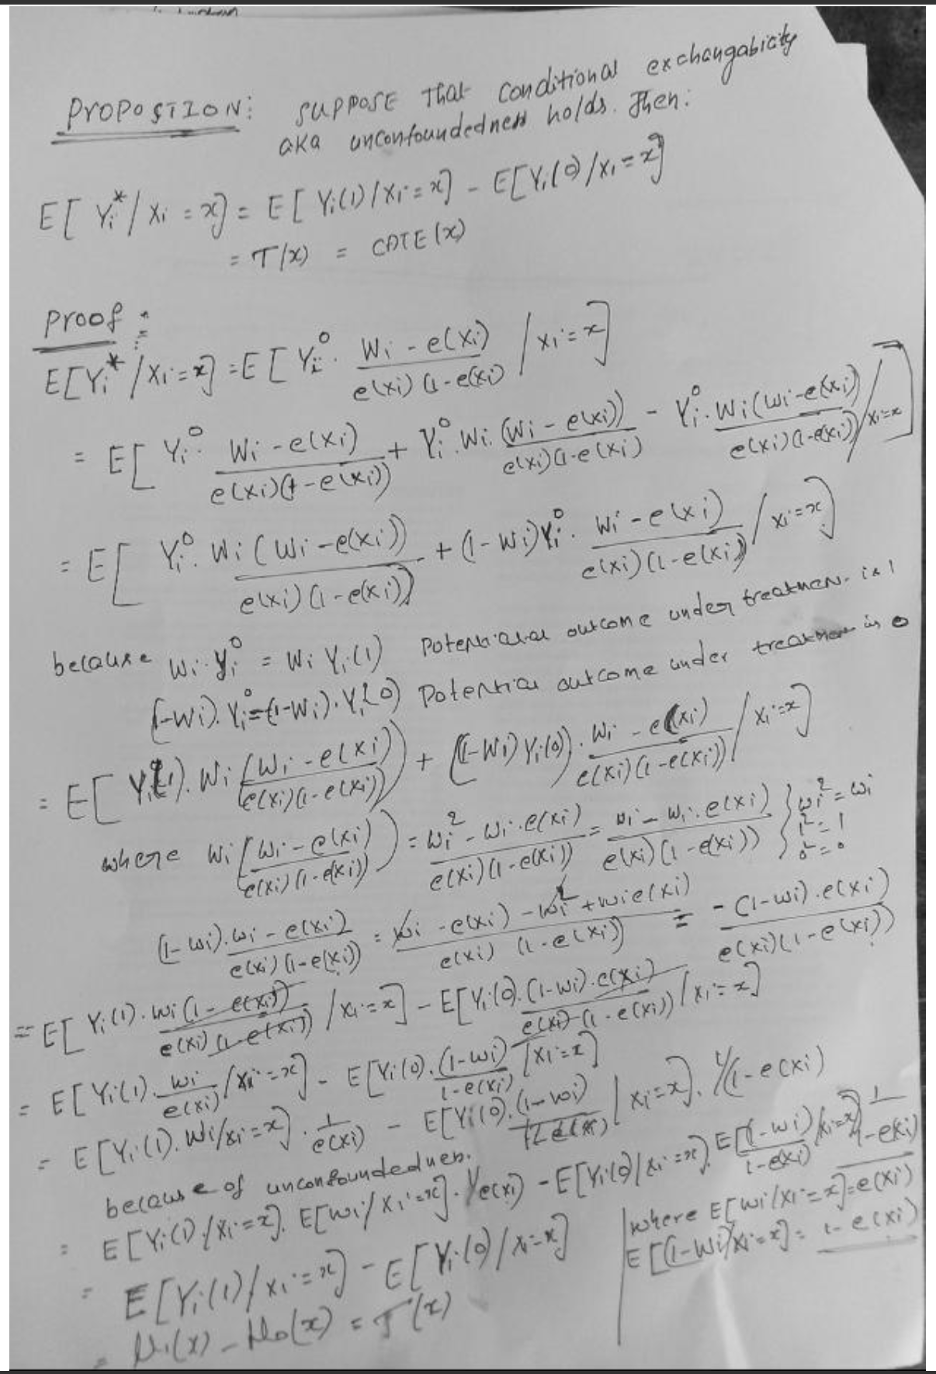 PROPOSTION: SUPPOSE That conditional exchangabicity
aka unconfoundedness holds. Then:
E[Yi*/Xi = x] = E[Yi(1)/Xi = x] - E[Yi(0)/Xi = x]
= T(x) = CATE(x)
Proof :
E[Yi*/Xi = x] = E[Yi⁰. Wi - e(Xi) / e(Xi)(1-e(Xi) / Xi = x]
= E[Yi⁰. Wi - e(Xi) / e(Xi)(1-e(Xi)) + Yi⁰.Wi.(Wi - e(Xi)) / e(Xi)(1-e(Xi) - Yi⁰.Wi(Wi-e(Xi)) / e(Xi)(1-e(Xi)) / Xi=x]
= E[Yi⁰.Wi(Wi-e(Xi)) / e(Xi)(1-e(Xi)) + (1-Wi)Yi⁰. Wi - e(Xi) / e(Xi)(1-e(Xi)) / Xi=x]
because Wi.Yi⁰ = Wi Yi(1) outcome under is 1
(1-Wi).Yi⁰=(1-Wi).Yi(0) outcome under is 0
= E[Yi(1).Wi(Wi - e(Xi) / e(Xi)(1-e(Xi))) + ((1-Wi)Yi(0)). Wi - e(Xi) / e(Xi)(1-e(Xi)) / Xi=x]
where Wi(Wi - e(Xi) / e(Xi)(1-e(Xi))) = Wi² - Wi.e(Xi) / e(Xi)(1-e(Xi)) = Wi - Wi.e(Xi) / e(Xi)(1-e(Xi)) } Wi² = Wi
1² = 1
0² = 0
(1-Wi).Wi - e(Xi) / e(Xi)(1-e(Xi)) = Wi - e(Xi) - Wi² + Wie(Xi) / e(Xi)(1-e(Xi)) = -(1-Wi).e(Xi) / e(Xi)(1-e(Xi))
= E[Yi(1).Wi(1-e(Xi)) / e(Xi)(1-e(Xi)) / Xi=x] - E[Yi(0).(1-Wi).e(Xi) / e(Xi)(1-e(Xi)) / Xi=x]
= E[Yi(1). Wi / e(Xi) / Xi=x] - E[Yi(0).(1-Wi) / 1-e(Xi) / Xi=x]
= E[Yi(1).Wi/Xi=x]. 1 / e(Xi) - E[Yi(0).(1-Wi) | Xi=x]. 1/(1-e(Xi)
because of unconfoundedness.
= E[Yi(1)/Xi=x]. E[Wi/Xi=x]. 1/e(Xi) - E[Yi(0)/Xi=x]. E[(1-Wi) / 1-e(Xi) / Xi=x] 1 / 1-e(Xi)
where E[Wi/Xi=x]=e(Xi)
E[(1-Wi)/Xi=x]= 1-e(Xi)
= E[Yi(1)/Xi=x] - E[Yi(0)/Xi=x]
= μ1(x) - μ0(x) = T(x)